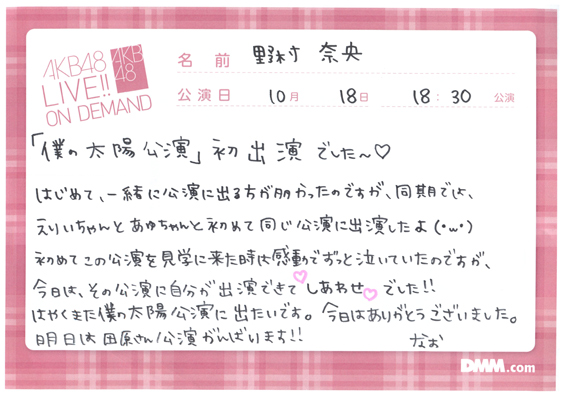 AKB48
LIVE!!
ON DEMAND
AKB
48
名前 野村 奈央
公演日 10月 18日 18:30 公演
「僕の太陽公演」初出演でした〜♡
はじめて、一緒に公演に出る方が多かったのですが、同期では、
えりぃちゃんとあゆちゃんと初めて同じ公演に出演したよ(・ω・)
初めてこの公演を見学に来た時は感動でずっと泣いていたのですが、
今日は、その公演に自分が出演できて♡しあわせ♡でした!!
はやくまた僕の太陽公演に出たいです。今日はありがとうございました。
明日は田原さん公演がんばります!!
なお
DMM.com